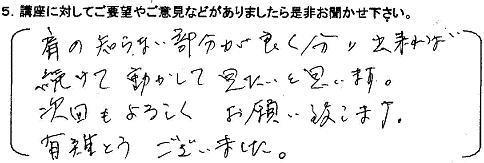 5. 講座に対してご要望やご意見などがありましたら是非お聞かせ下さい。
肩の知らない部分が良く分り出来れば
続けて動かして見たいと思います。
次回もよろしくお願い致します。
有難とうございました。